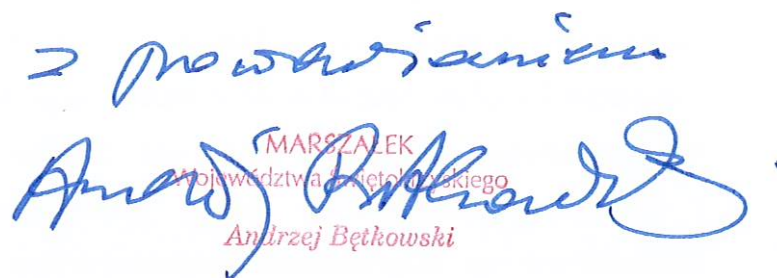 z poważaniem
MARSZAŁEK
Województwa Świętokrzyskiego
Andrzej Bętkowski
Andrzej Bętkowski